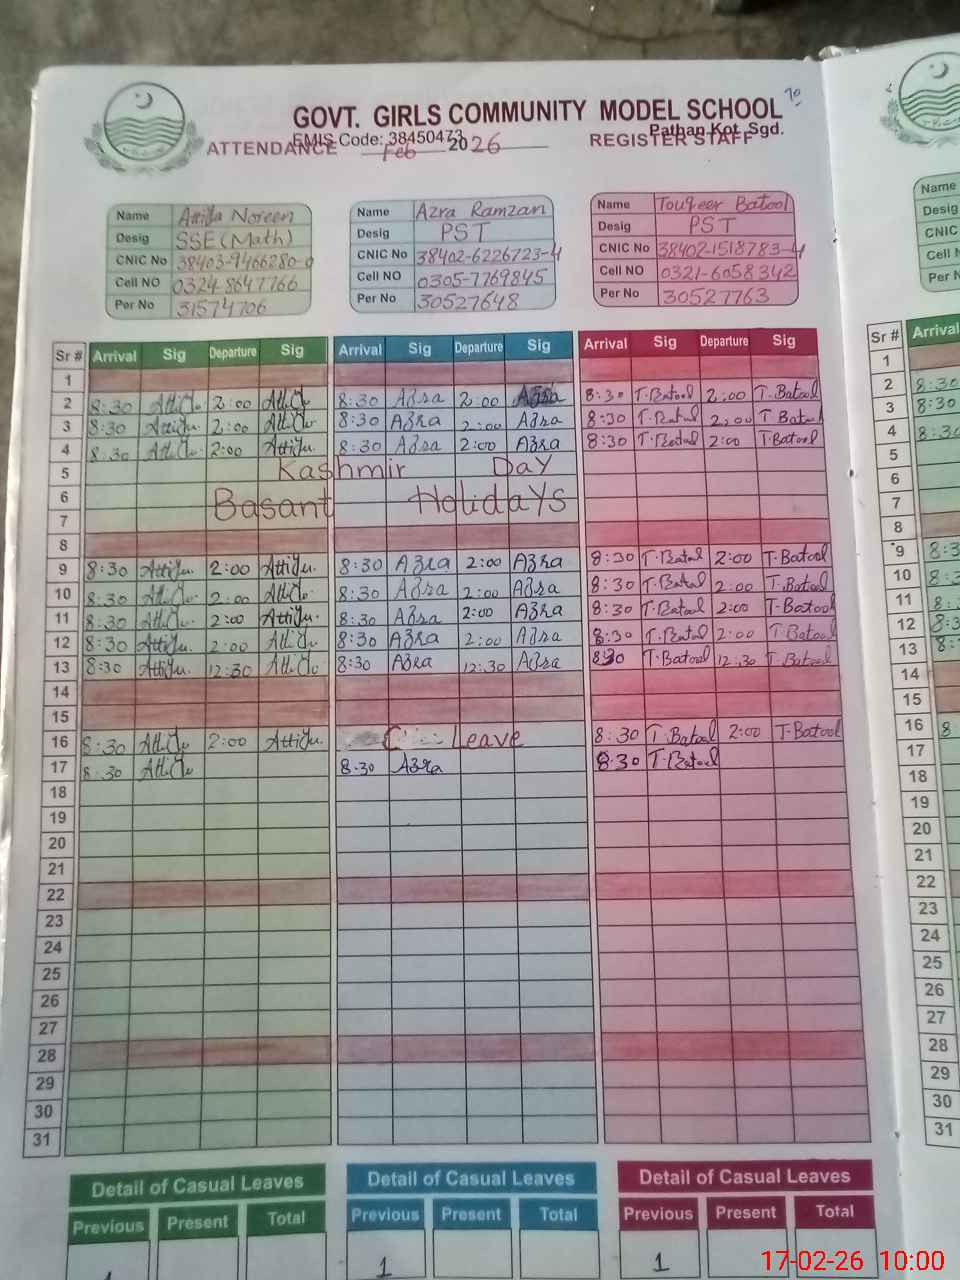 GOVT. GIRLS COMMUNITY MODEL SCHOOL 70
EMIS Code: 38450473 Pathan Kot, Sgd.
ATTENDANCE Feb 2026 REGISTER STAFF
Name Attiqa Noreen Name Azra Ramzan Name Touqeer Batool Name
Desig SSE (Math) Desig PST Desig PST Desig
CNIC No 38403-9466280-0 CNIC No 38402-6226723-4 CNIC No 38402-1518783-4 CNIC
Cell NO 0324-8647766 Cell NO 0305-7769845 Cell NO 0321-6058342 Cell
Per No 31574706 Per No 30527648 Per No 30527763 Per
Sr # Arrival Sig Departure Sig Arrival Sig Departure Sig Arrival Sig Departure Sig Sr # Arrival
1 1
2 8:30 2:00 8:30 Azra 2:00 Azra 8:30 T.Batool 2:00 T.Batool 2 8:30
3 8:30 2:00 8:30 Azra 2:00 Azra 8:30 T.Batool 2:00 T.Batool 3 8:30
4 8:30 2:00 8:30 Azra 2:00 Azra 8:30 T.Batool 2:00 T.Batool 4 8:30
5 Kashmir Day 5
6 Basant Holidays 6
7 7
8 8
9 8:30 2:00 8:30 Azra 2:00 Azra 8:30 T.Batool 2:00 T.Batool 9 8:3
10 8:30 2:00 8:30 Azra 2:00 Azra 8:30 T.Batool 2:00 T.Batool 10
11 8:30 2:00 8:30 Azra 2:00 Azra 8:30 T.Batool 2:00 T.Batool 11
12 8:30 2:00 8:30 Azra 2:00 Azra 8:30 T.Batool 2:00 T.Batool 12
13 8:30 12:30 8:30 Azra 12:30 Azra 8:30 T.Batool 12:30 T.Batool 13
14 14
15 15
16 8:30 2:00 Leave 8:30 T.Batool 2:00 T.Batool 16
17 8:30 8:30 Azra 8:30 T.Batool 17
18 18
19 19
20 20
21 21
22 22
23 23
24 24
25 25
26 26
27 27
28 28
29 29
30 30
31 31
Detail of Casual Leaves Detail of Casual Leaves Detail of Casual Leaves
Previous Present Total Previous Present Total Previous Present Total
1 1 1
17-02-26 10:00